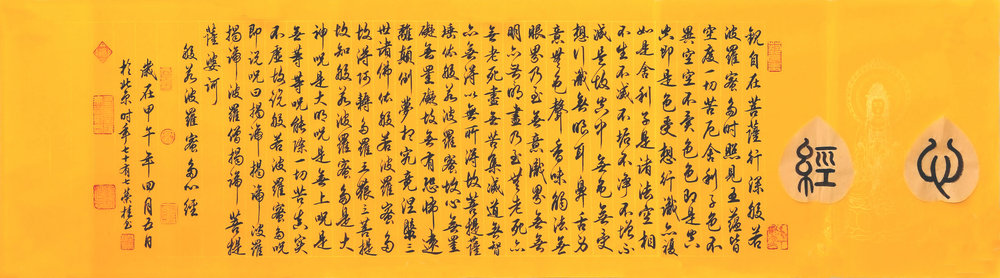 心
經
觀自在菩薩行深般若
波羅蜜多時照見五蘊皆
空度一切苦厄舍利子色不
異空空不異色色即是空
空即是色受想行識亦復
如是舍利子是諸法空相
不生不滅不垢不淨不增不
減是故空中無色無受
想行識無眼耳鼻舌身
意無色聲香味觸法無
眼界乃至無意識界無無
明亦無明盡乃至無老死亦
無老死盡無苦集滅道無智
亦無得以無所得故菩提薩
埵依般若波羅蜜故心無罣
礙無罣礙故無有恐怖遠
離顛倒夢想究竟涅槃三
世諸佛依般若波羅蜜多
故得阿耨多羅三藐三菩提
故知般若波羅蜜多是大
神咒是大明咒是無上咒是
無等等咒能除一切苦真實
不虛故說般若波羅蜜多咒
即說咒曰揭諦揭諦波羅
揭諦波羅僧揭諦菩提
薩婆訶
般若波羅蜜多心經
歲在甲午年四月五日
於北京時年七十有七